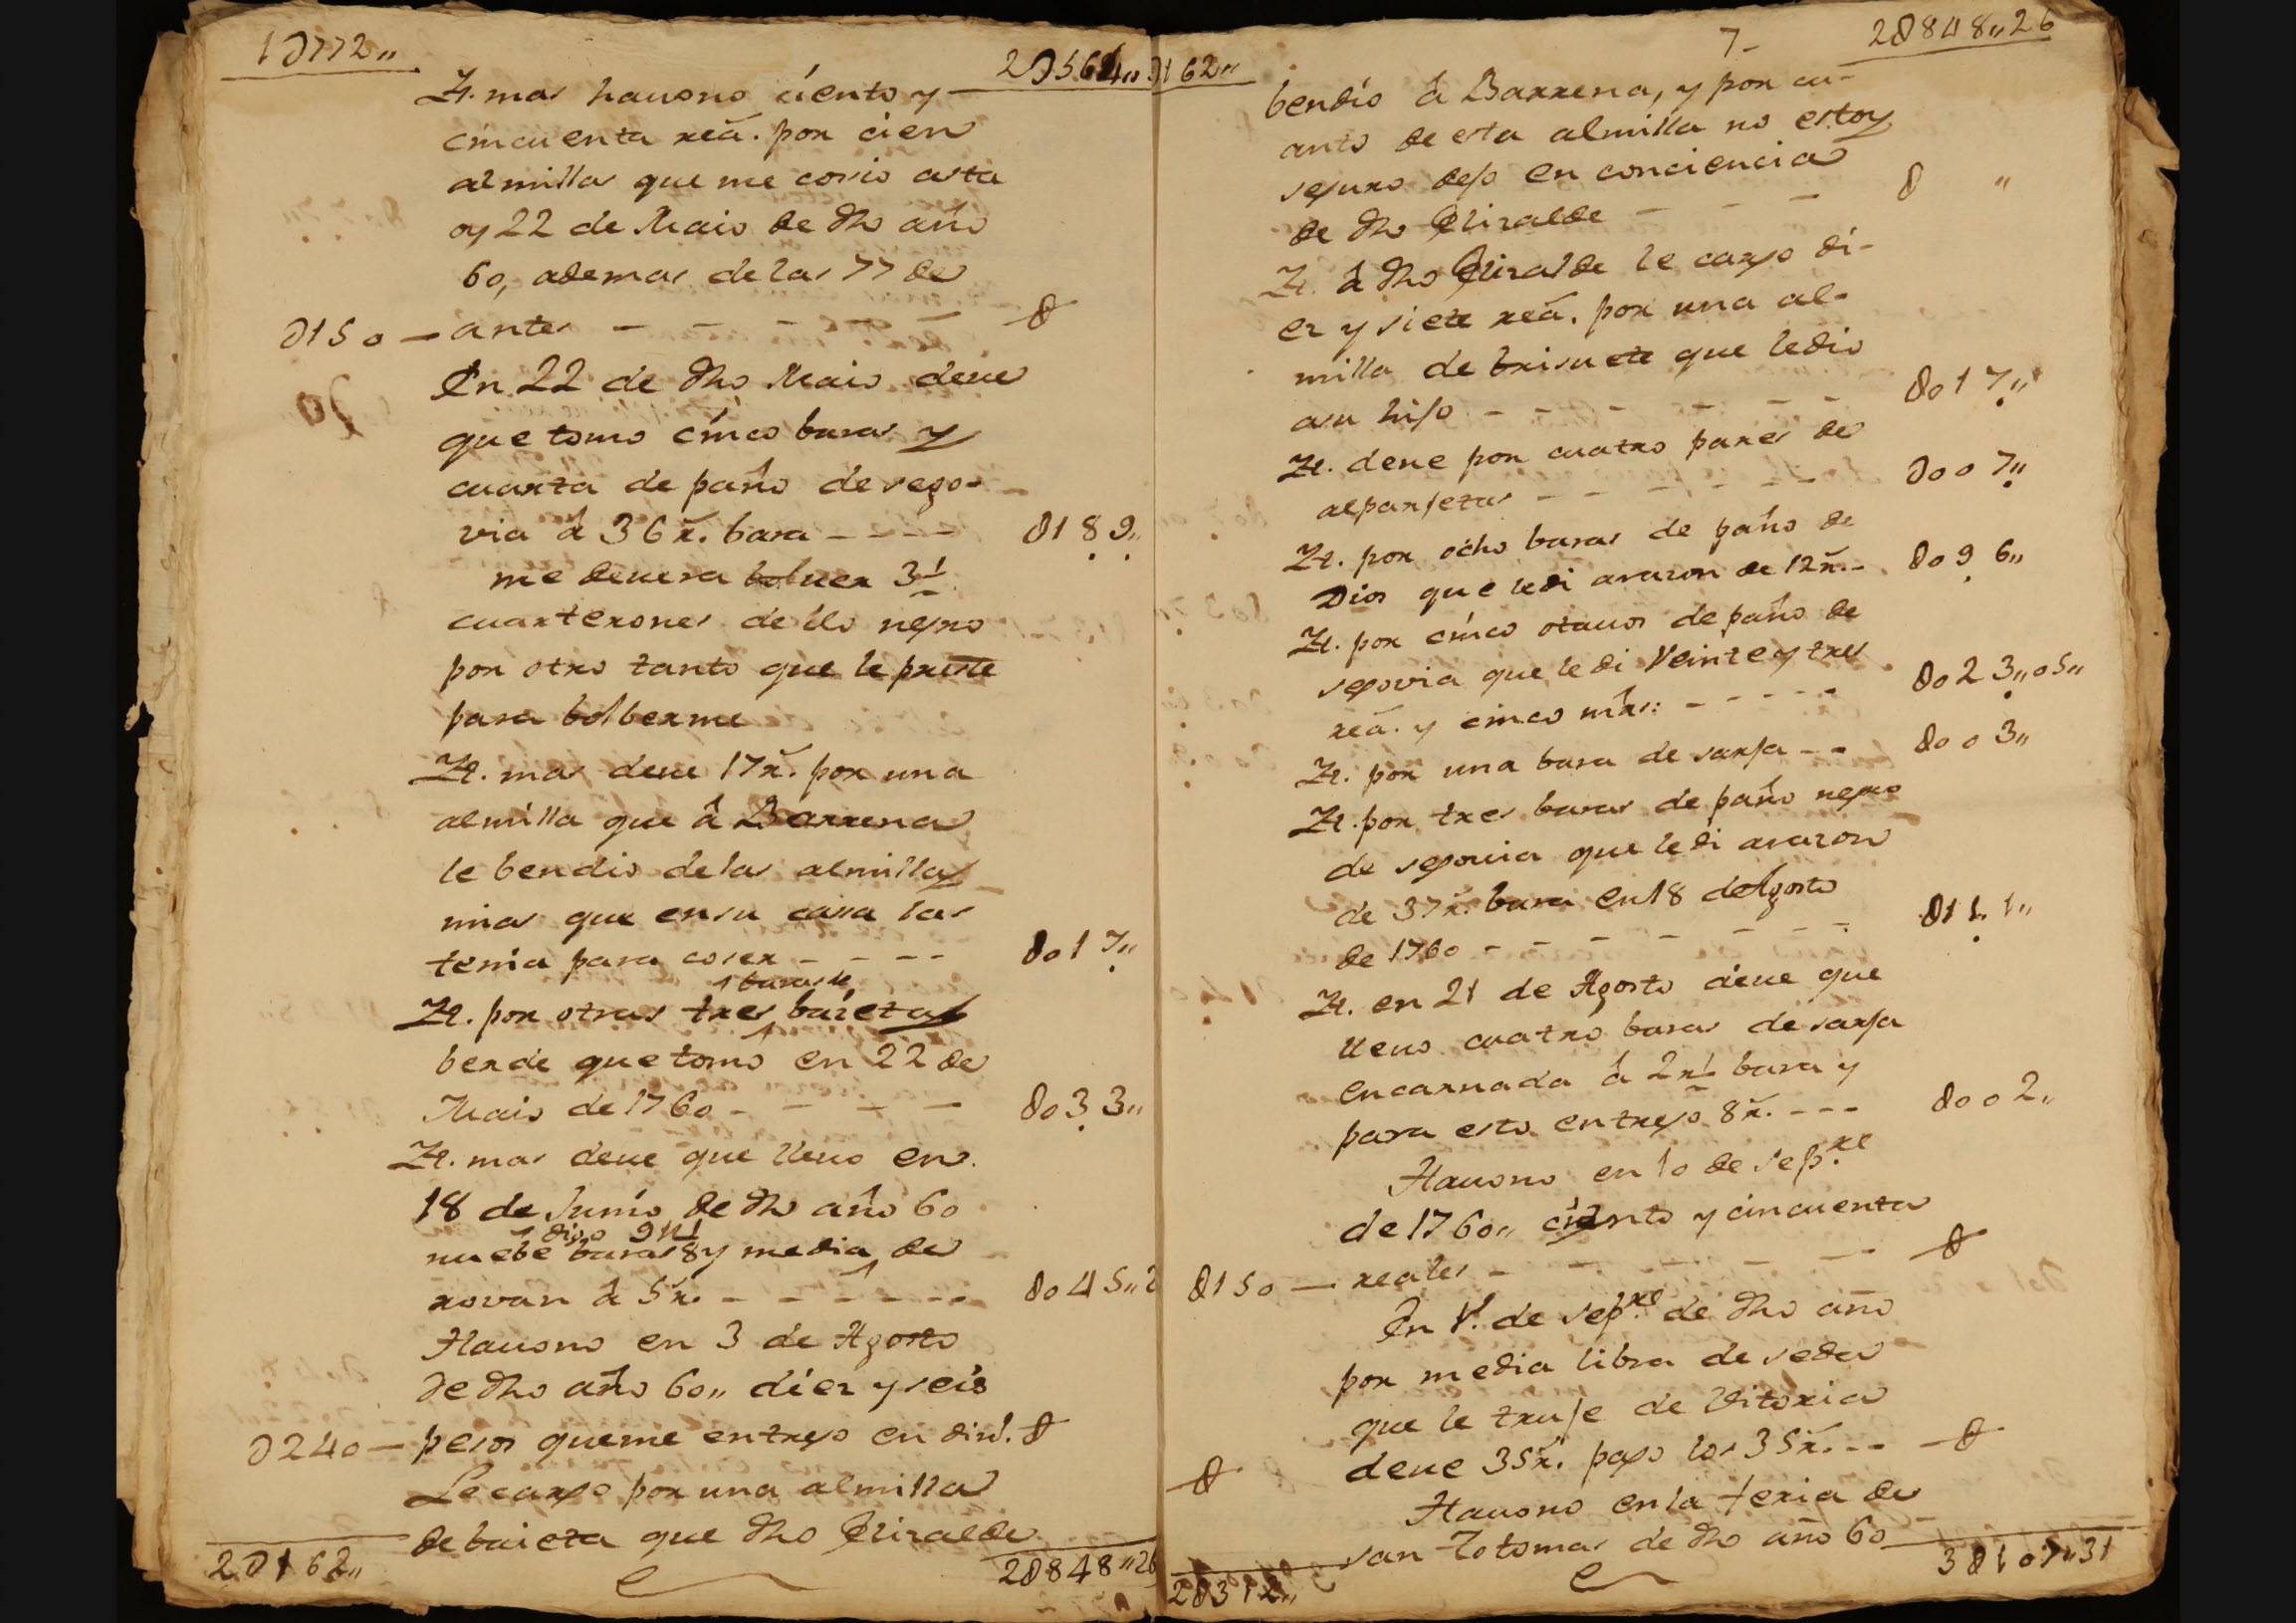 1U772,, 2U564,,
Yt. mas hauono ciento y
cincuenta reã. por cien
almillas que me cosio asta
oy 22 de Maio de dho año
60, ademas de las 77 de
U150 — antes - - - - - U
En 22 de dho Maio deue
que tomo cinco baras y
cuarta de paño de sego-
via â 36 r̃. bara - - - - U189,,
me deuera boluer 3½
cuarterones de ilo negro
por otro tanto que le preste
para bolberme
Yt. mas deue 17 r̃. por una
almilla que â Barrena
le bendio de las almillas
mias que en su casa las
tenia para coser - - - - U017,,
baras de
Yt. por otras tres baietas
berde que tomó en 22 de
Maio de 1760 - - - - U033,,
Yt. mas deue que lleuo en
18 de Junio de dho año 60
digo 9 y ½
nuebe baras 8 y media de
rovan â 5 r̃. - - - - - - U045,,2
Hauono en 3 de Agosto
de dho año 60,, diez y seis
U240 — pesos que me entrego en din.º U
Le cargo por una almilla
de baieta que dho Elizalde
2U162,, 2U848,,26
U162,, 7- 2U848,,26
bendio â Barrena, y por cu-
anto de esta almilla no estoy
seguro dejo en conciencia
de dho Elizalde - - - U ,,
Yt. â dho Elizalde le cargo di-
ez y siete reã. por una al-
milla de brisuete que le dio
a su hijo - - - - - - U017,,
Yt. deue por cuatro pares de
alparjetas - - - - - - U007,,
Yt. por ocho baras de paño de
Dios que le di a razon de 12 r̃. - U096,,
Yt. por cinco otauos de paño de
segovia que le di Veinte y tres
reã. y cinco mrs: - - - - - U023,,05,,
Yt. por una bara de sarja - - U003,,
Yt. por tres baras de paño negro
de segouia que le di a razon
de 37 r̃. bara en 18 de Agosto
de 1760 - - - - - - - U111,,
Yt. en 21 de Agosto deue que
lleuo cuatro baras de sarja
encarnada â 2 r½ bara y
para esto entrego 8 r̃. - - - U002,,
Hauono en 10 de sep.re
de 1760,, ciento y cincuenta
U150 — reales - - - - - U
En 1.º de sep.re de dho año
por media libra de seda
que le truje de Vitoria
deue 35 r̃. pago los 35 r̃. - - U
U
Hauono en la feria de
san Totomas de dho año 60
2U312,, 3U107,,31